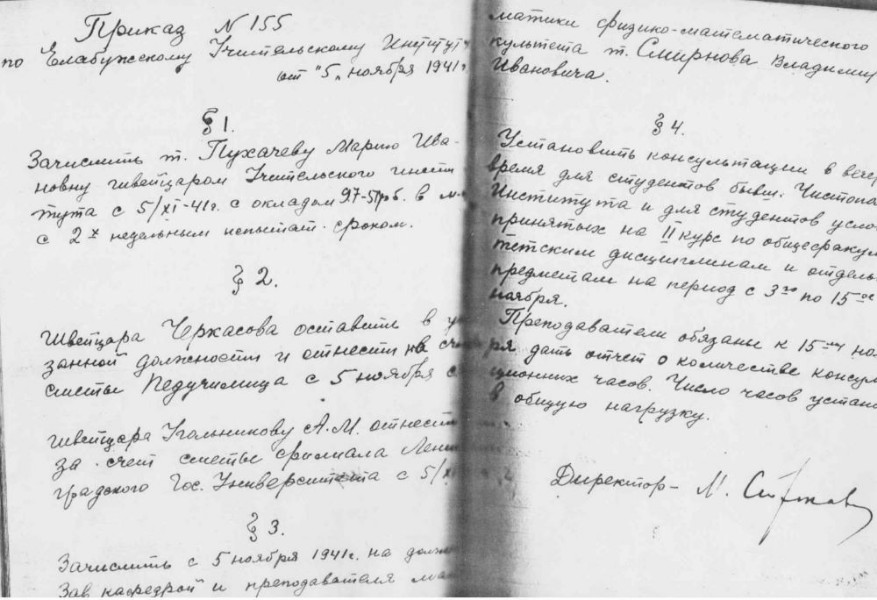 Приказ N 155
по Елабужскому Учительскому Институту
от "5" ноября 1941г.
§ 1.
Зачислить т. Пухачеву Марию Ива-
новну швейцаром Учительского инсти
тута с 5/XI-41г. с окладом 97-51 в
с 2х недельным испытат. сроком.
§ 2.
Швейцара Черкасова оставить в
занной должности и отнести на
сметы Педучилища с 5 ноября
Швейцара Угольникову А.М. отнести
за счет сметы филиала Ленин
градского Гос. Университета с 5/XI
§ 3.
Зачислить с 5 ноября 1941г. на долж
Зав кафедрой и преподавателя мате
матики физико-математического
культета т. Смирнова Владимир
Ивановича.
§ 4.
Установить консультации в вечер
время для студентов бывш. Чистопо
Института и для студентов усло
принятых на II курс по общефакуль
тетским дисциплинам и отдель
предметам на период с 3го по 15ое
ноября.
Преподаватели обязаны к 15ому ноя
ря дать отчет о количестве консуль
ционных часов. Число часов устано
в общую нагрузку.
Директор-